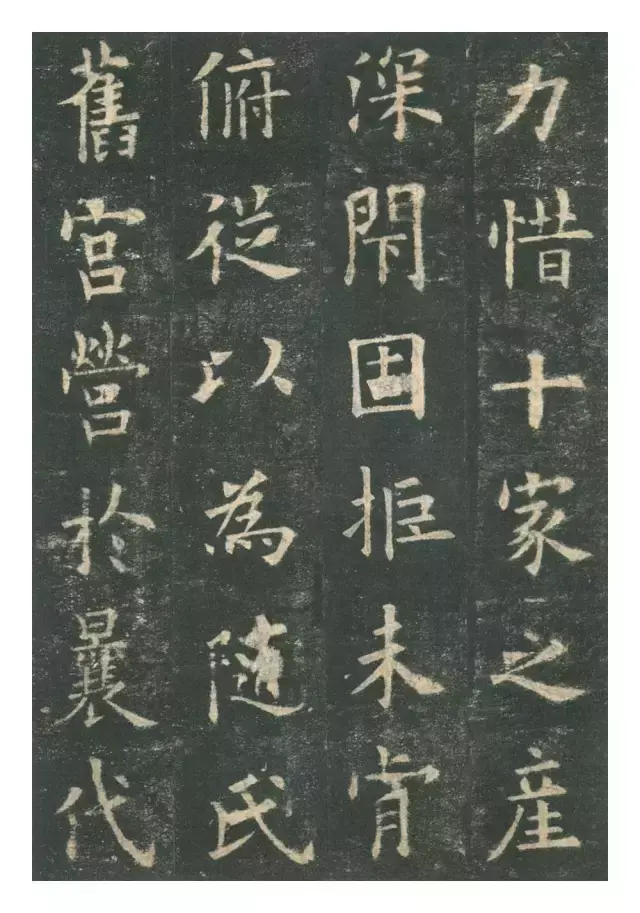 力惜十家之產
深閇固拒未肯
俯從以為隨氏
舊宮營於曩代